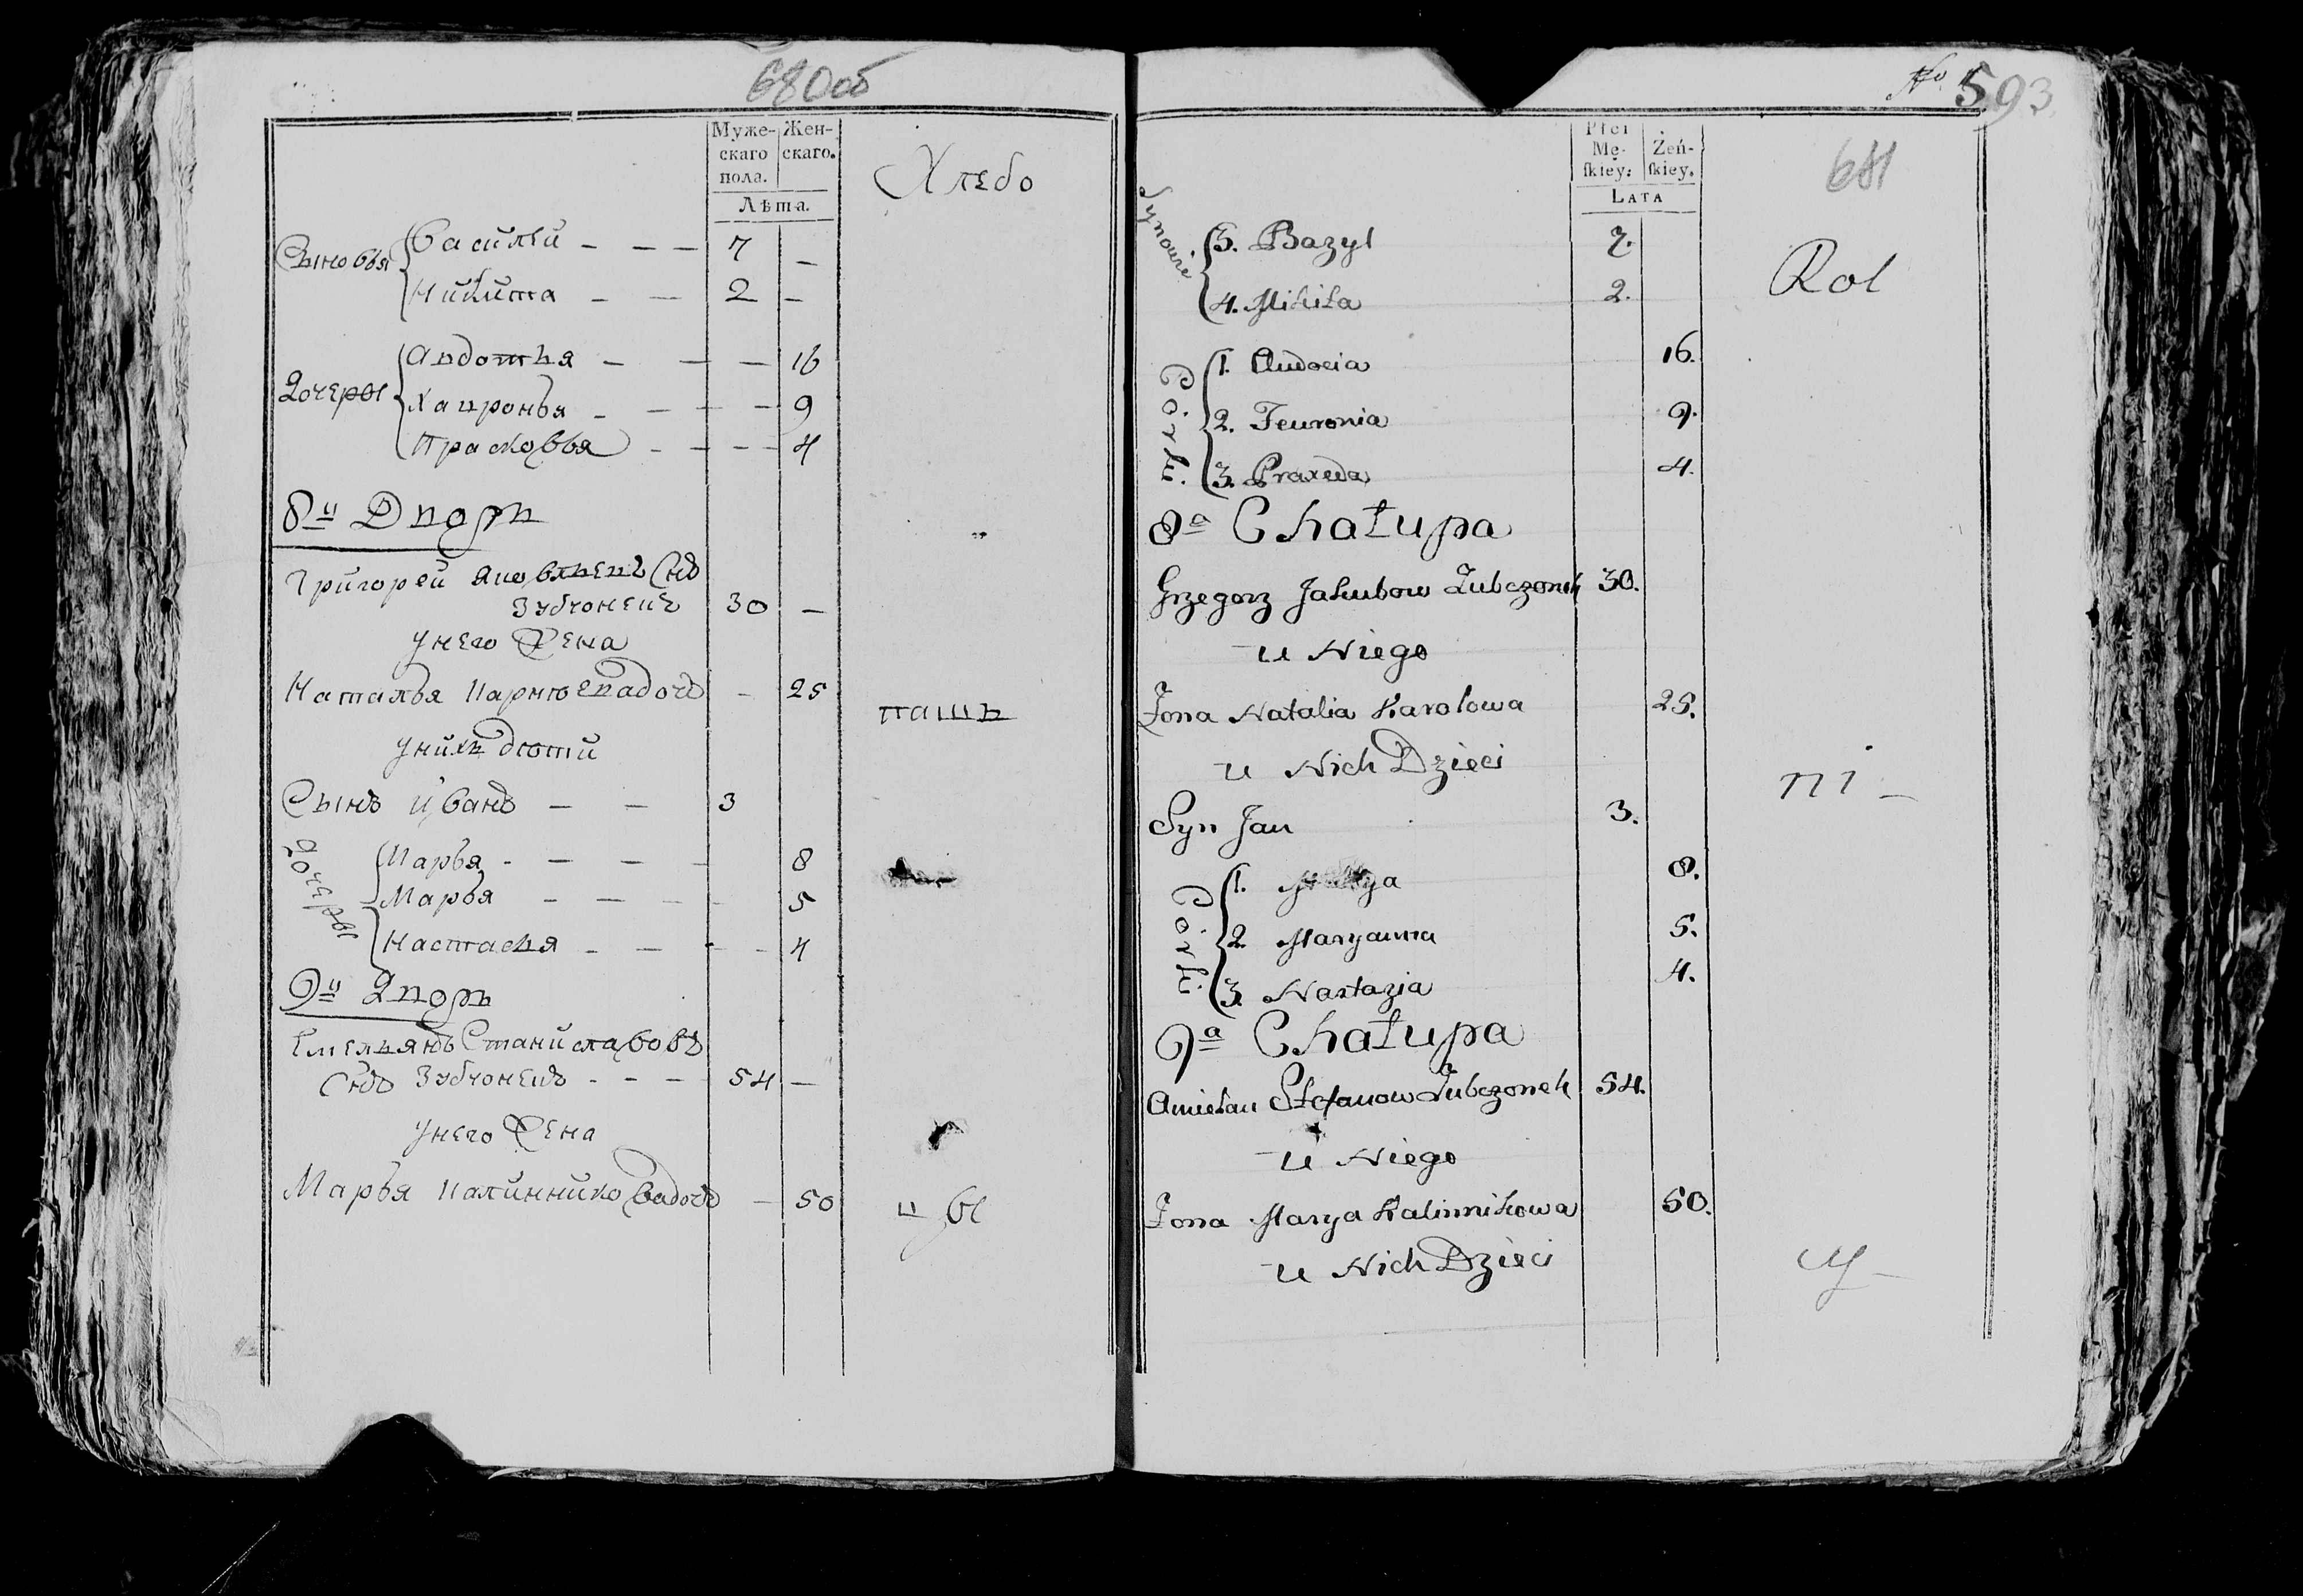 680об
Муже-скаго пола. Жен-скаго.
Лѣта.
Хлебо
Сыновья Василѣй — — — 7 —
Никита — — 2 —
Дочеры Авдотья — — — 16
Хавронья — — — — 9
Прасковья — — — — 4
8й Дворъ
Григорей Яковлевъ Снъ
Зубчонекъ 30 —
унего жена
Наталья Карнюевадочь — 25
пашъ
унихъ дѣти
Сынъ иванъ — — 3
Дочеры Марья — — — — 8
Марья — — — — 5
Настасья — — — — 4
9й Дворъ
Емельянъ Станиславовъ
Снъ Зубчонекъ — — — 54 —
унего жена
Марья Калинниковадочь — 50
цы
No. 593
Płci Mę-skiey: Żeń-skiey.
Lata
681
Synowie 3. Bazyl 7.
4. Mikita 2.
Rol
Corki. 1. Audocia 16.
2. Feuronia 9.
3. Praxeda 4.
8a Chałupa
Grzegorz Jakubow Zubczonek 30.
u Niego
Zona Natalia Karolowa 25.
u Nich Dzieci
ni —
Syn Jan 3.
Corki. 1. 8.
2. Maryanna 5.
3. Nastazia 4.
9a Chałupa
Amielan Stefanow Zubczonek 54.
u Niego
Zona Marya Kalinnikowa 50.
u Nich Dzieci
cy —